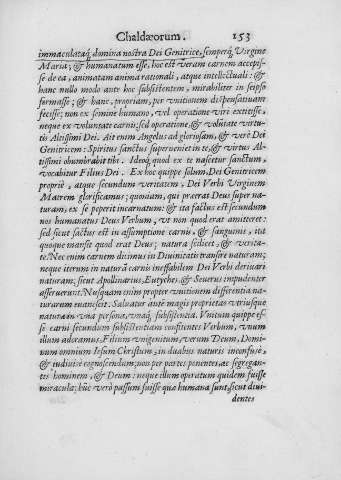 Chaldæorum. 153
immaculataq́; domina nostra Dei Genitrice, semperq́; Virgine
Maria; & humanatum esse, hoc est veram carnem accepis-
se de ea, animatam anima rationali, atque intellectuali: &
hanc nullo modo ante hoc subsistentem, mirabiliter in seipso
formasse; & hanc, propriam, per vnitionem dispensatiuam
fecisse; non ex semine humano, vel operatione viri extitisse,
neque ex voluntate carnis; sed operatione, & volutate virtu-
tis Altissimi Dei. Ait enim Angelus ad gloriosam, & verè Dei
Genitricem: Spiritus sanctus superueniet in te, & virtus Al-
tissimi obumbrabit tibi. Ideoq́; quod ex te nascetur sanctum,
vocabitur Filius Dei. Ex hoc quippe solum, Dei Genitricem
propriè, atque secundum veritatem, Dei Verbi Virginem
Matrem glorificamus; quoniam, qui præerat Deus super na-
turam, ex se peperit incarnatum: & ita factus est secundum
nos humanatus Deus Verbum, vt non quod erat amitteret:
sed sicut factus est in assumptione carnis, & sanguinis, ita
quoque mansit quod erat Deus; natura scilicet, & verita-
te. Nec enim carnem dicimus in Diuinitatis transire naturam;
neque iterum in naturā carnis ineffabilem Dei Verbi deriuari
naturam; sicut Apollinarius, Eutyches, & Seuerus impudenter
asseruerunt. Nusquam enim propter vnitionem differentia na-
turarum euanescit. Saluatur autē magis proprietas vtriusque
naturæ in vna persona, vnaq́; subsistentia. Vnitum quippe es-
se carni secundum subsistentiam confitentes Verbum, vnum
illum adoramus, Filium vnigenitum, verum Deum, Domi-
num omnium Iesum Christum, in duabus naturis inconfusè,
& indiuisè cognoscendum; non per partes ponentes, ac segregan-
tes hominem, & Deum: neque illum operatum quidem fuisse
miracula; hūc verò passum fuisse quæ humana sunt, sicut diui-
dentes